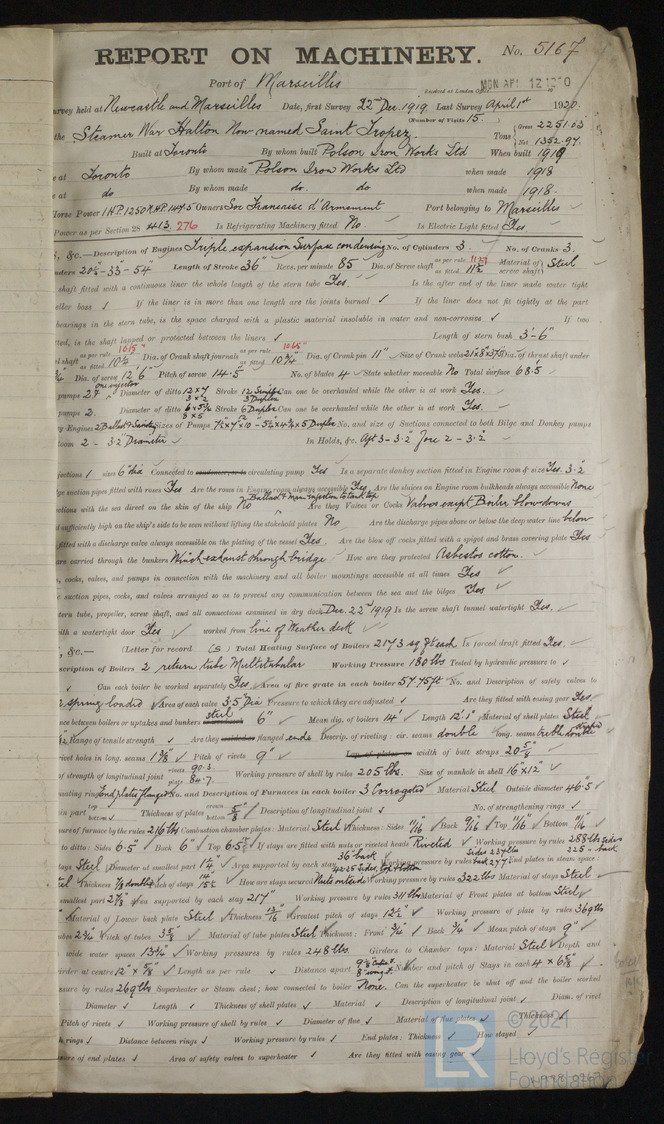 REPORT ON MACHINERY. No. 5167
Port of Marseilles
Received at London Office MON. APL 12 1920
survey held at Newcastle and Marseilles Date, first Survey 22nd Dec. 1919. Last Survey April 1st 1920.
(Number of Visits 15.)
the Steamer War Halton Now named Saint Tropez. Tons Gross 2251.63 Net 1352.97.
Built at Toronto By whom built Polson Iron Works Ltd When built 1919
at Toronto By whom made Polson Iron Works Ltd when made 1918
at do By whom made do. do when made 1918.
Horse Power IHP. 1250 Owners Soc Francaise d'Armement Port belonging to Marseilles
Power as per Section 28 413 276 Is Refrigerating Machinery fitted No. Is Electric Light fitted Yes.
&c.—Description of Engines Triple expansion Surface condensing No. of Cylinders 3. No. of Cranks 3.
20½-33-54" Length of Stroke 36" Revs. per minute 85 Dia. of Screw shaft as per rule as fitted 11½ Material of screw shaft Steel
shaft fitted with a continuous liner the whole length of the stern tube Yes. Is the after end of the liner made water tight
If the liner is in more than one length are the joints burned ✓ If the liner does not fit tightly at the part
bearings in the stern tube, is the space charged with a plastic material insoluble in water and non-corrosive ✓ If two
fitted, is the shaft lapped or protected between the liners ✓ Length of stern bush 3'-6"
shaft as per rule 10.15" as fitted 10¾ Dia. of Crank shaft journals as per rule 10.65" as fitted 10¾" Dia. of Crank pin 11" Size of Crank webs Dia. of thrust shaft under
Dia. of screw 12'6" Pitch of screw 14-5" No. of blades 4 State whether moveable No Total surface 68.5
pumps 2 Diameter of ditto Stroke Can one be overhauled while the other is at work Yes.
pumps 2. Diameter of ditto Stroke 6 Duplex Can one be overhauled while the other is at work Yes.
Sizes of Pumps No. and size of Suctions connected to both Bilge and Donkey pumps
2 - 3.2 Diameter In Holds, &c. Aft 3-3.2" Fore 2-3.2"
1 sizes 6" dia Connected to circulating pump Yes Is a separate donkey suction fitted in Engine room & size Yes. 3.2
suction pipes fitted with roses Yes Are the roses in Engine room always accessible Yes Are the sluices on Engine room bulkheads always accessible None
with the sea direct on the skin of the ship No Ballast & main injection to tank top Are they Valves or Cocks Valves except Boiler blow-downs
sufficiently high on the ship's side to be seen without lifting the stokehold plates No Are the discharge pipes above or below the deep water line below
fitted with a discharge valve always accessible on the plating of the vessel Yes. Are the blow off cocks fitted with a spigot and brass covering plate Yes
are carried through the bunkers Winch exhaust through bridge How are they protected Asbestos cotton.
cocks, valves, and pumps in connection with the machinery and all boiler mountings accessible at all times Yes
suction pipes, cocks, and valves arranged so as to prevent any communication between the sea and the bilges Yes
stern tube, propeller, screw shaft, and all connections examined in dry dock Dec. 22nd 1919 Is the screw shaft tunnel watertight Yes.
with a watertight door Yes worked from line of Weather deck
&c.— (Letter for record (S) Total Heating Surface of Boilers 2173 sq ft each Is forced draft fitted Yes.
Description of Boilers 2 return tube Multitubular Working Pressure 180 lbs Tested by hydraulic pressure to ✓
✓ Can each boiler be worked separately Yes Area of fire grate in each boiler 57.75 ft No. and Description of safety valves to
2, spring loaded Area of each valve 3.5" Dia Pressure to which they are adjusted ✓ Are they fitted with easing gear Yes.
between boilers or uptakes and bunkers steel 6" Mean dia. of boilers 14' Length 12'.1" Material of shell plates Steel
Range of tensile strength ✓ Are they flanged ends Descrip. of riveting: cir. seams double long. seams treble double
rivet holes in long. seams 1⅜" Pitch of rivets 9" width of butt straps 20⅝"
of strength of longitudinal joint rivets 90.3. plate 84.7. Working pressure of shell by rules 205 lbs. Size of manhole in shell 16" x 12"
end plates flanged No. and Description of Furnaces in each boiler 3 Corrugated Material Steel Outside diameter 46.5"
part top bottom Thickness of plates crown bottom ⅝" Description of longitudinal joint ✓ No. of strengthening rings ✓
pressure of furnace by the rules 216 lbs Combustion chamber plates: Material Steel Thickness: Sides 11/16" Back 9/16" Top 11/16" Bottom 11/16"
to ditto: Sides 6.5" Back 6" Top 6.5" If stays are fitted with nuts or riveted heads Riveted Working pressure by rules 288 lbs sides 225 back
Steel Diameter of smallest part 1¼" Area supported by each stay 36" back 42.25 Sides, top & bottom Working pressure by rules Sides 237 lbs back 277 End plates in steam space:
Thickness Pitch of stays How are stays secured Nuts outside Working pressure by rules 322 lbs Material of stays Steel
smallest part 2⅞" Area supported by each stay 217" Working pressure by rules 311 lbs Material of Front plates at bottom Steel
Material of Lower back plate Steel Thickness 13/16" Greatest pitch of stays 12½" Working pressure of plate by rules 369 lbs
2¾" Pitch of tubes 3⅝" Material of tube plates Steel Thickness: Front ¾" Back ¾" Mean pitch of stays 9"
wide water spaces 13¼" Working pressures by rules 248 lbs. Girders to Chamber tops: Material Steel Depth and
girder at centre 12" x ⅝" Length as per rule Distance apart Number and pitch of Stays in each 4 x 6⅝"
pressure by rules 269 lbs Superheater or Steam chest; how connected to boiler None. Can the superheater be shut off and the boiler worked
Diameter ✓ Length ✓ Thickness of shell plates ✓ Material ✓ Description of longitudinal joint ✓ Diam. of rivet
Pitch of rivets ✓ Working pressure of shell by rules ✓ Diameter of flue ✓ Material of flue plates ✓ Thickness ✓
rings ✓ Distance between rings ✓ Working pressure by rules ✓ End plates: Thickness ✓ How stayed
of end plates ✓ Area of safety valves to superheater ✓ Are they fitted with easing gear
LR © 2021 Lloyd's Register Foundation